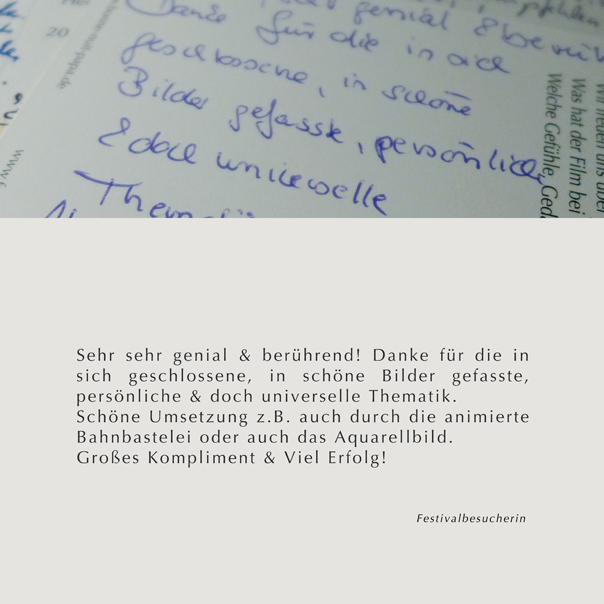 genial & berüh
Danke für die in sich
geschlossene, in schöne
Bilder gefasste, persönliche
& doch universelle
Them
20
Wir freuen uns über
Was hat der Film bei
Welche Gefühle, Ged
Sehr sehr genial & berührend! Danke für die in
sich geschlossene, in schöne Bilder gefasste,
persönliche & doch universelle Thematik.
Schöne Umsetzung z.B. auch durch die animierte
Bahnbastelei oder auch das Aquarellbild.
Großes Kompliment & Viel Erfolg!
Festivalbesucherin